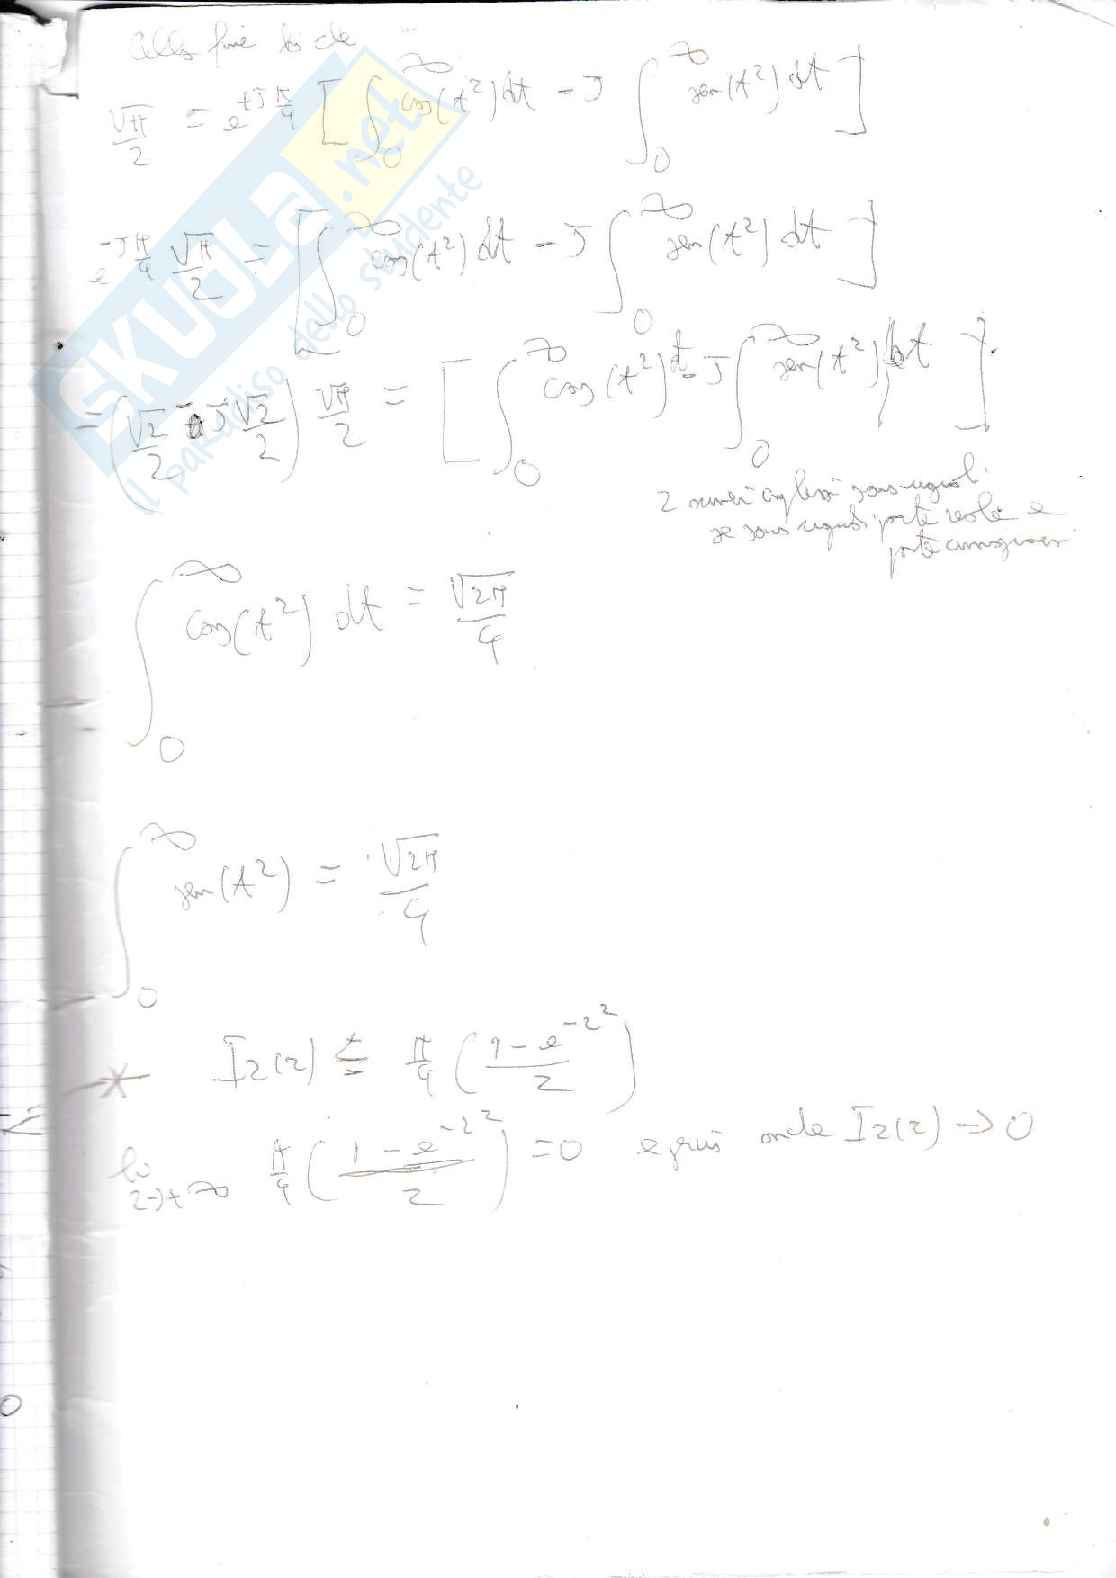 alla fine ho che
√π/2 = e^{+J π/4} [ ∫_0^∞ cos(t²) dt - J ∫_0^∞ sen(t²) dt ]
e^{-J π/4} √π/2 = [ ∫_0^∞ cos(t²) dt - J ∫_0^∞ sen(t²) dt ]
= ( √2/2 - J √2/2 ) √π/2 = [ ∫_0^∞ cos(t²) dt - J ∫_0^∞ sen(t²) dt ]
2 numeri complessi sono uguali
se sono uguali parte reale e
parte immaginaria
∫_0^∞ cos(t²) dt = √2π/4
∫_0^∞ sen(t²) = √2π/4
* I2(r) ≤ π/4 ( (1 - e^{-r²})/2 )
r→+∞ π/4 ( (1 - e^{-r²})/2 ) = 0 e quindi anche I2(r) → 0
SKUOLA.net
il paradiso dello studente